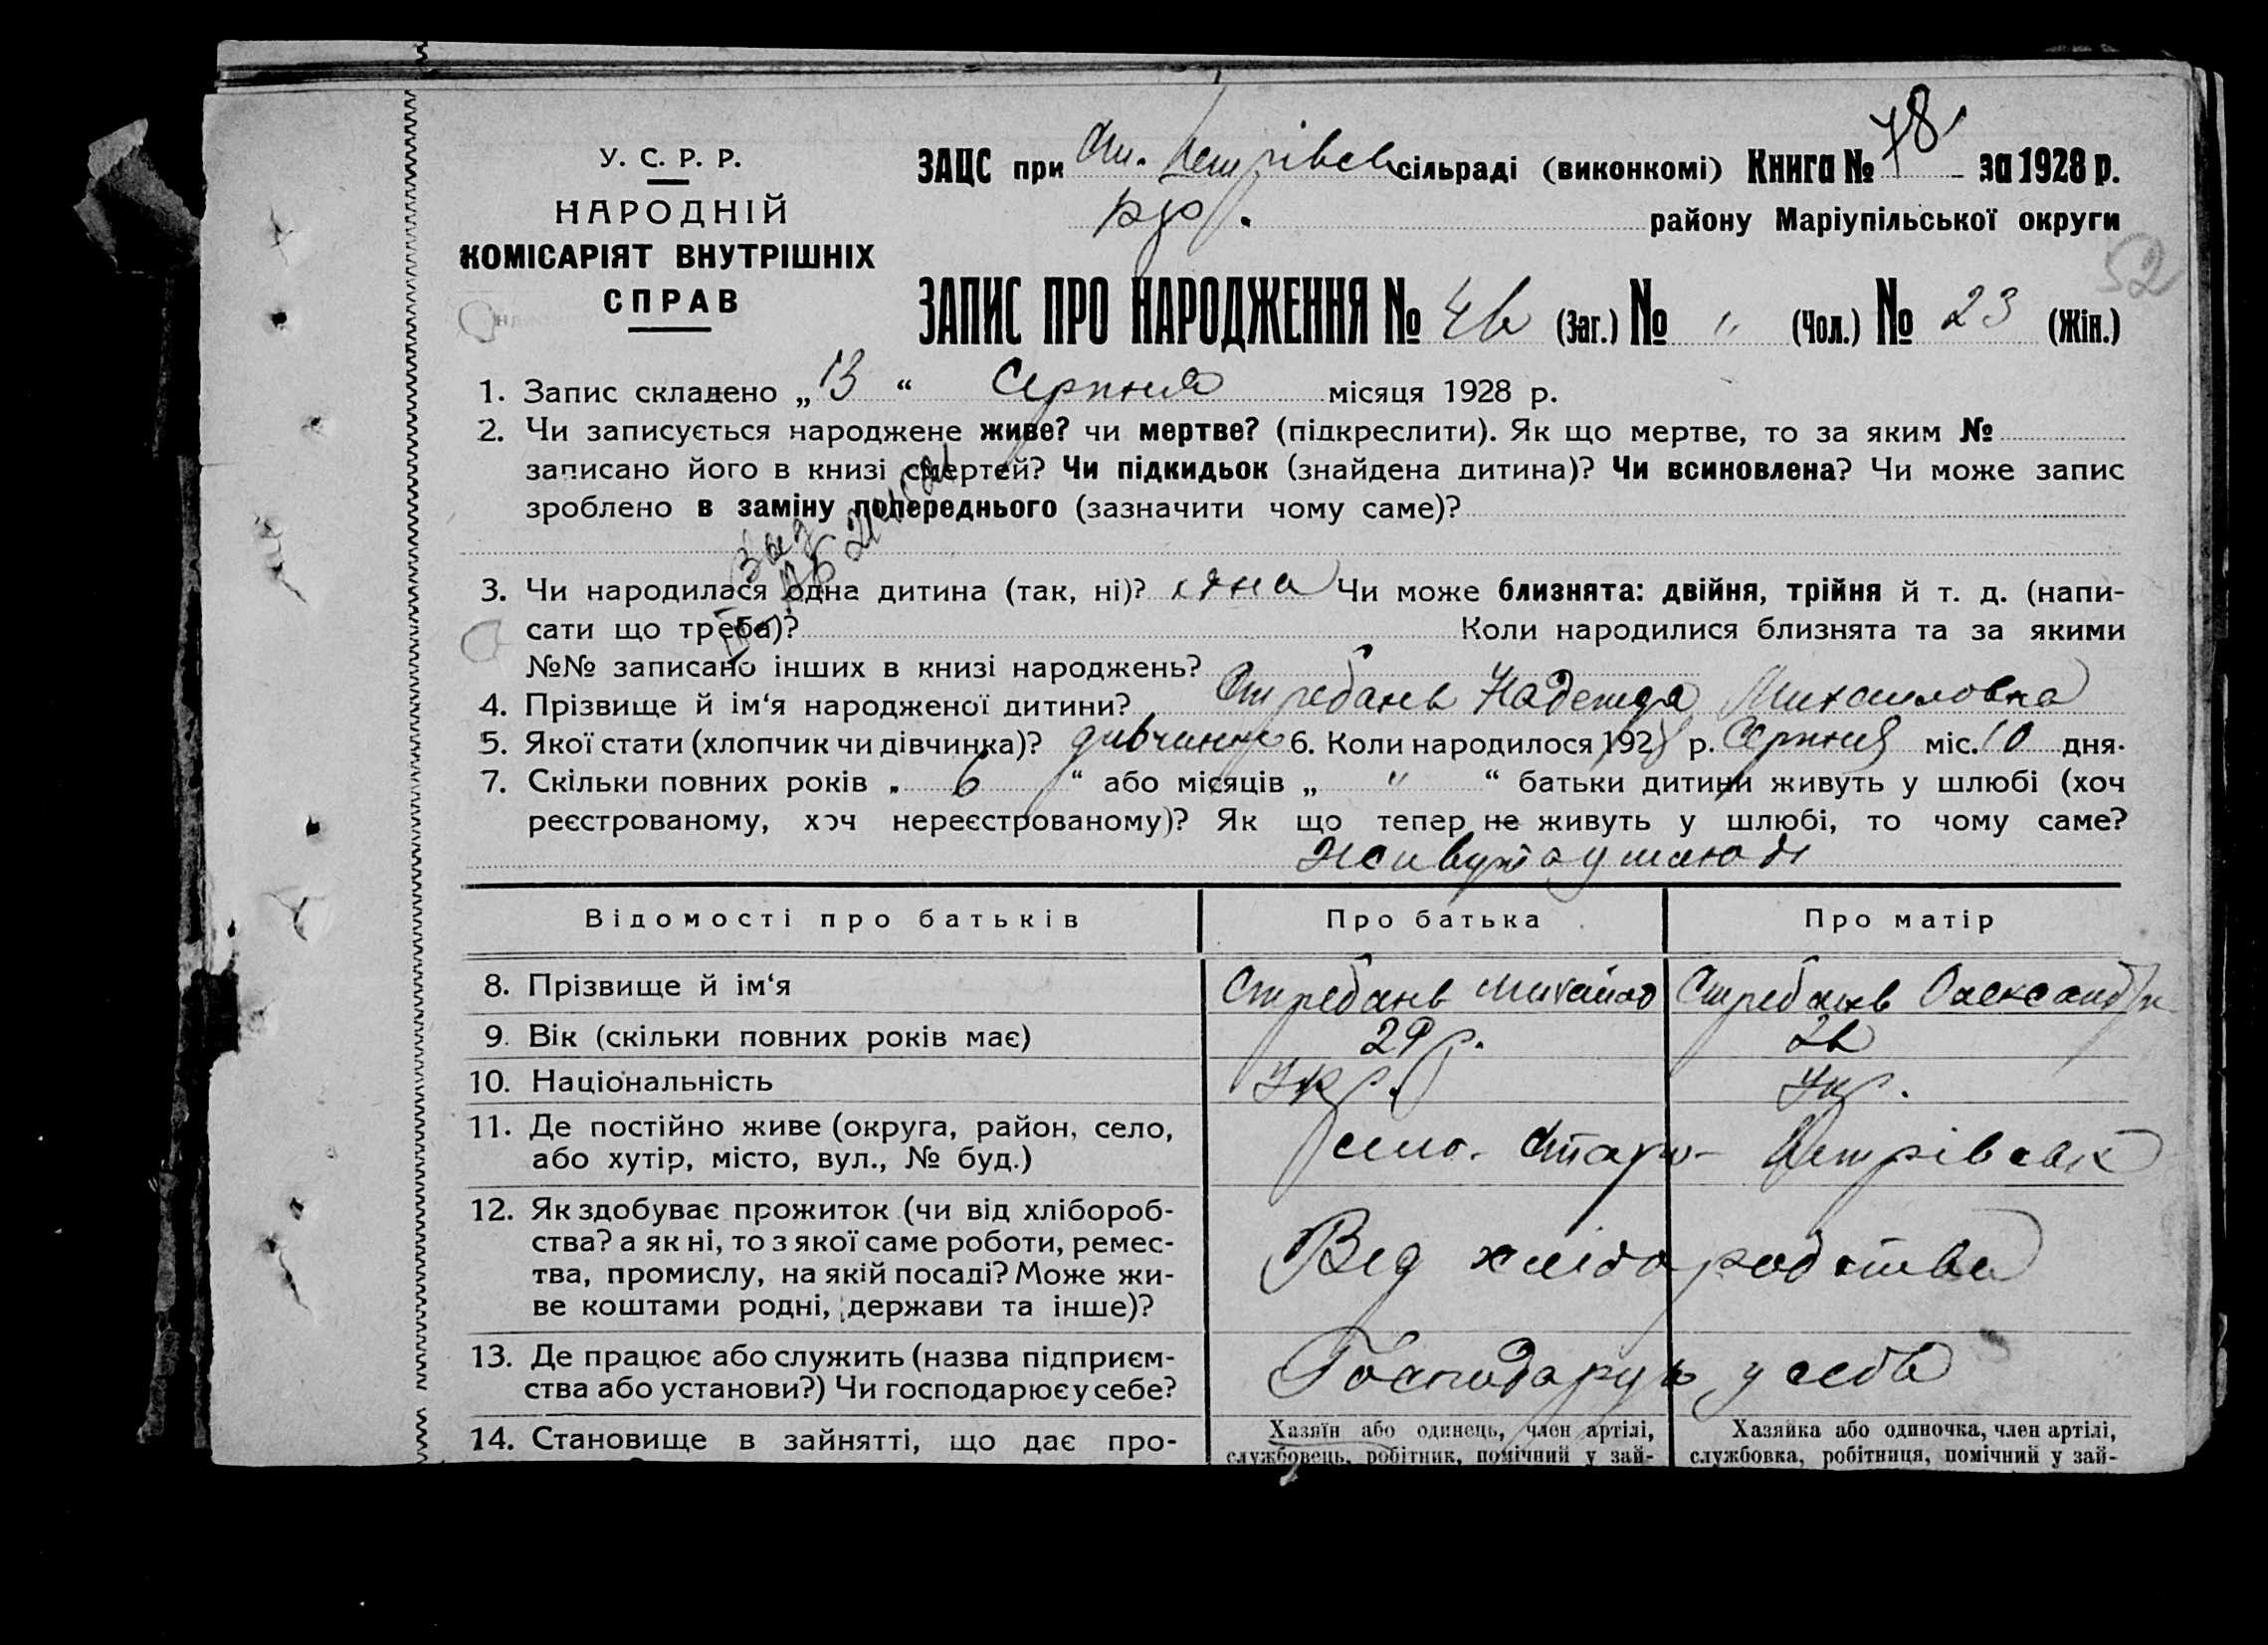 У. С. Р. Р.
НАРОДНІЙ
КОМІСАРІЯТ ВНУТРІШНІХ
СПРАВ
ЗАЦС при Ст. Петрівськ сільраді (виконкомі) Книга № 78 за 1928 р.
району Маріупільської округи
52
ЗАПИС ПРО НАРОДЖЕННЯ № (Заг.) № " (Чол.) № 23 (Жін.)
1. Запис складено „ 13 “ Серпня місяця 1928 р.
2. Чи записується народжене живе? чи мертве? (підкреслити). Як що мертве, то за яким №
записано його в книзі смертей? Чи підкидьок (знайдена дитина)? Чи всиновлена? Чи може запис
зроблено в заміну попереднього (зазначити чому саме)?
3. Чи народилася одна дитина (так, ні)? одна Чи може близнята: двійня, трійня й т. д. (напи-
сати що треба)? Коли народилися близнята та за якими
№№ записано інших в книзі народжень?
4. Прізвище й ім‘я народженої дитини? Стребань Надежда Михаиловна
5. Якої стати (хлопчик чи дівчинка)? дивчинка 6. Коли народилося 1928 р. Серпня міс. 10 дня.
7. Скільки повних років „ 6 “ або місяців „ " “ батьки дитини живуть у шлюбі (хоч
реєстрованому, хоч нереєстрованому)? Як що тепер не живуть у шлюбі, то чому саме?
Живуть у шлюбі
Відомості про батьків Про батька Про матір
8. Прізвище й ім‘я Стребань Михайло Стребань Олександра
9. Вік (скільки повних років має) 29 р.
10. Національність Укр. Укр.
11. Де постійно живе (округа, район, село,
або хутір, місто, вул., № буд.) село. Старо- Петрівськ
12. Як здобуває прожиток (чи від хлібороб-
ства? а як ні, то з якої саме роботи, ремес-
тва, промислу, на якій посаді? Може жи-
ве коштами родні, держави та інше)? Від хліборобства
13. Де працює або служить (назва підприєм-
ства або установи?) Чи господарює у себе? Господарує у себе
14. Становище в зайнятті, що дає про- Хазяїн або одинець, член артілі, Хазяйка або одиночка, член артілі,
службовець, робітник, помічний у зай- службовка, робітниця, помічний у зай-